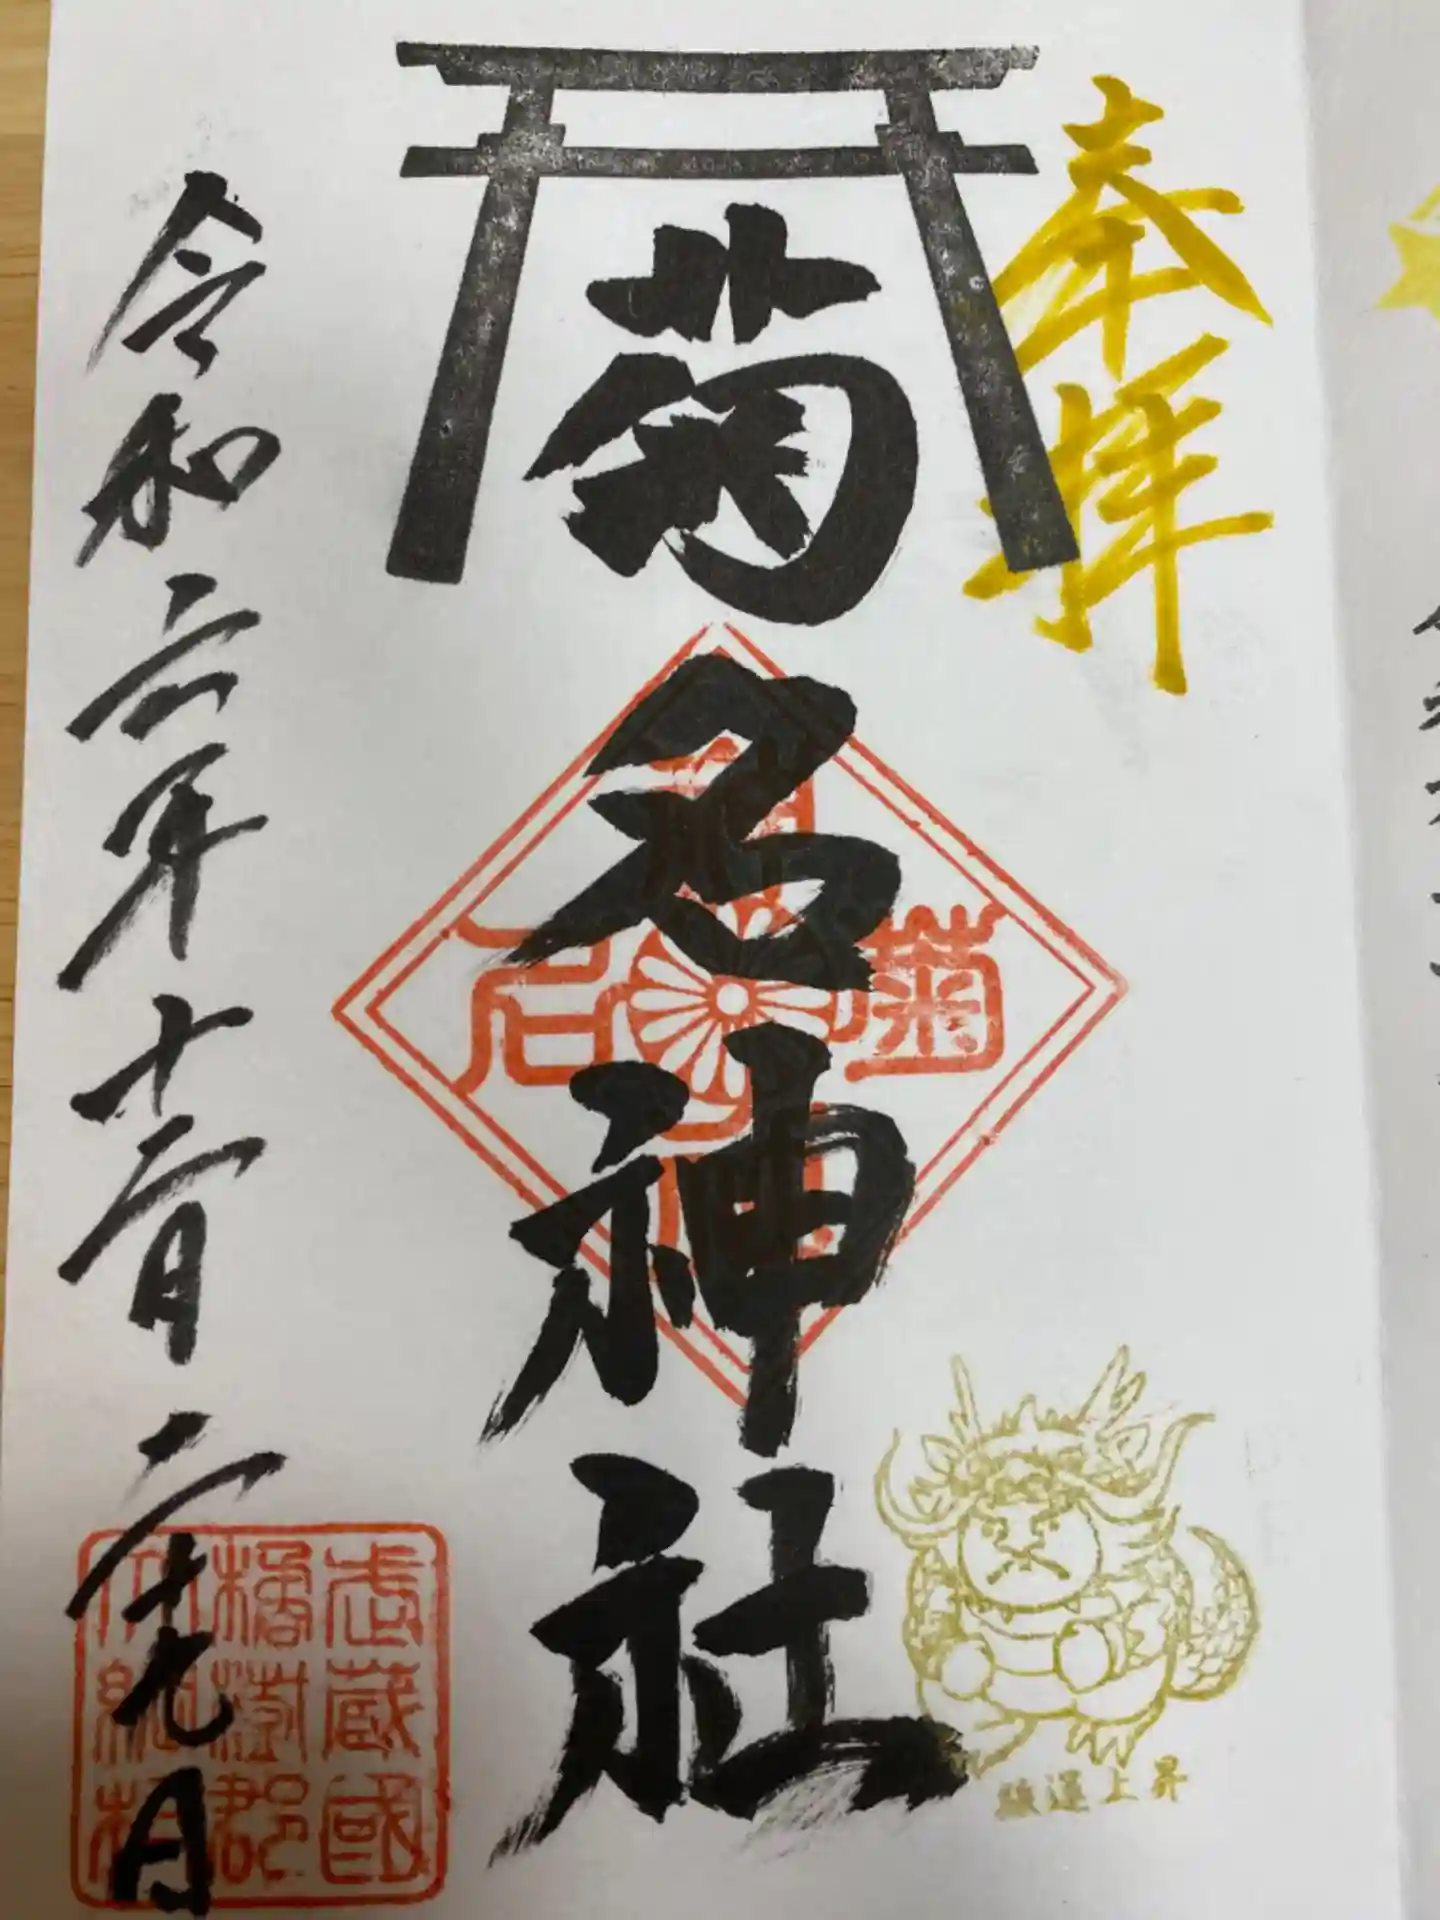 奉拝
菊名神社
菊名
運上昇
令和六年十二月二十九日
武蔵國
橘樹郡
大綱村